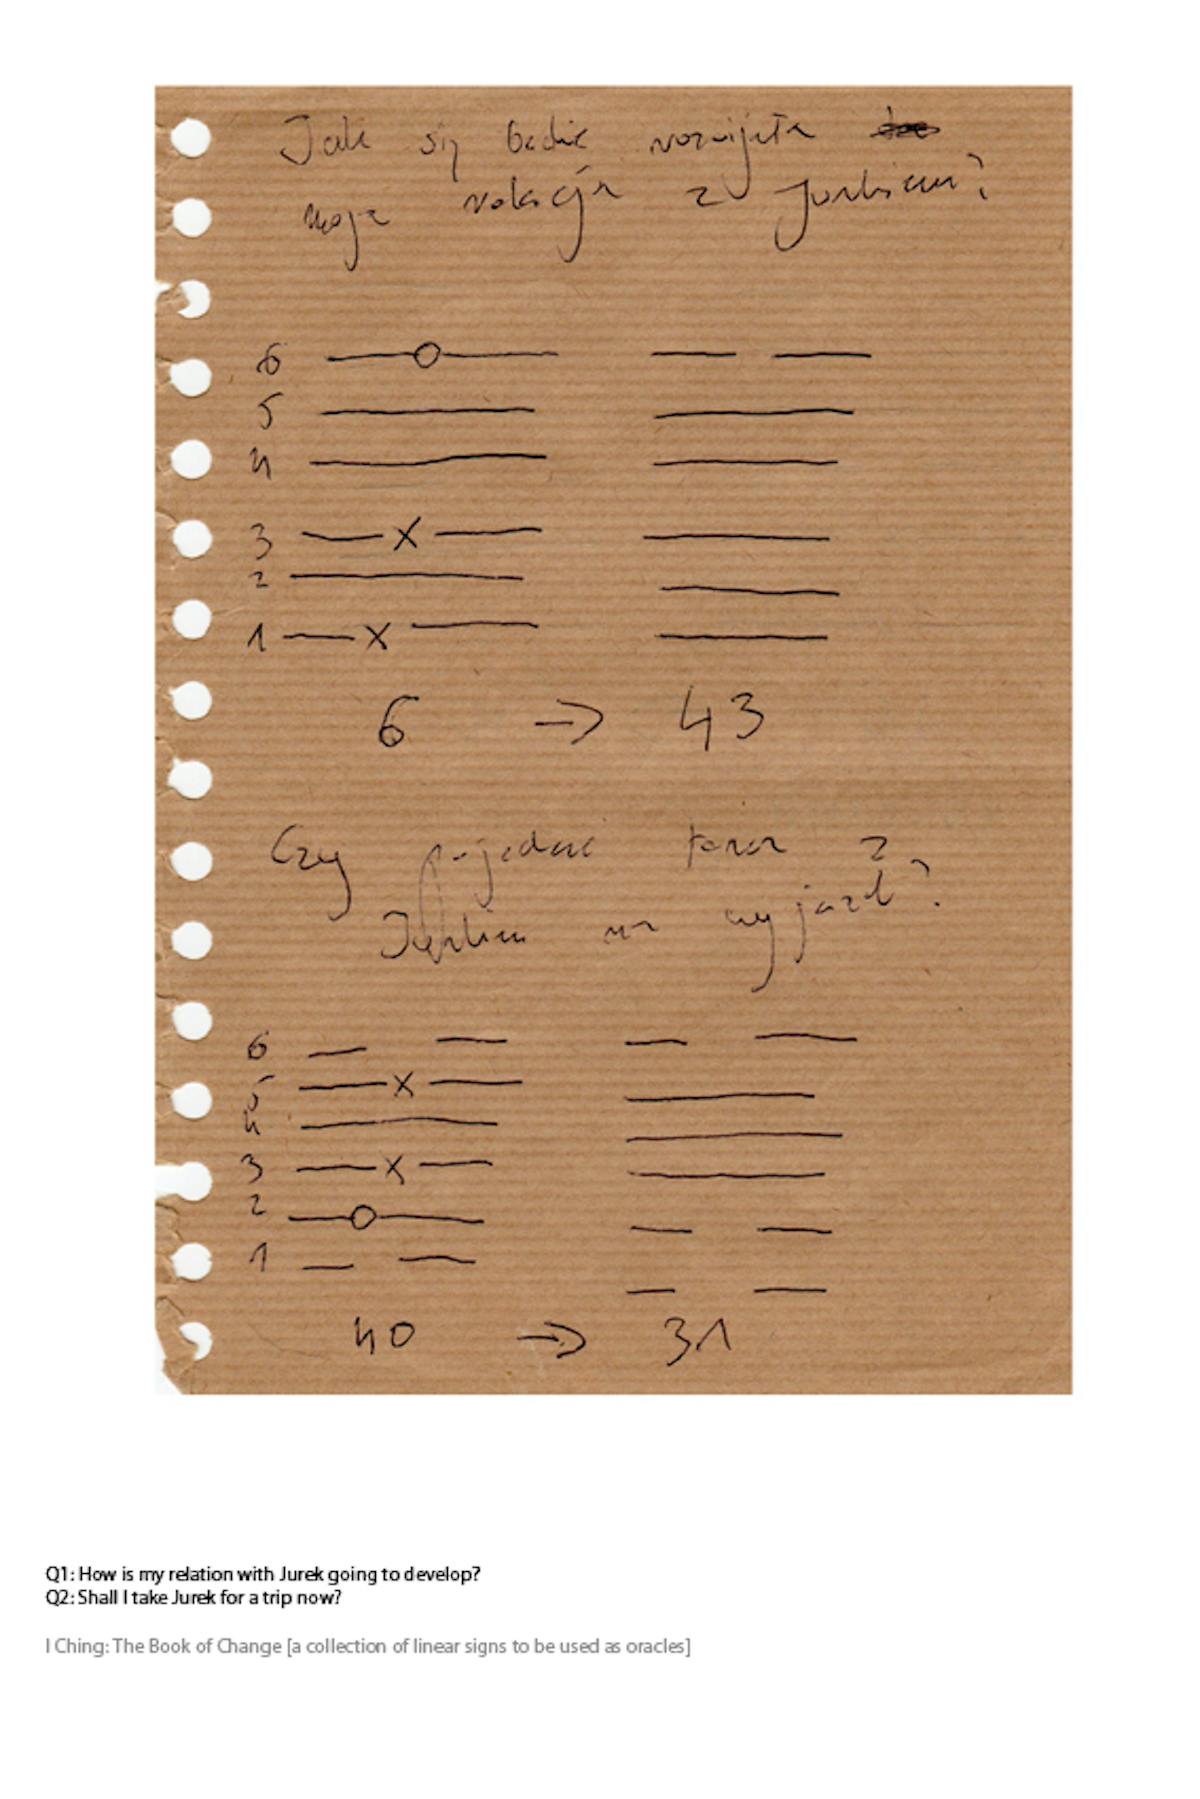 Jak się będzie rozwijała
moja relacja z Jurkiem?
6
5
4
3
2
1
6 → 43
Czy pojechać teraz z
Jurkiem na wyjazd?
6
5
4
3
2
1
40 → 31
Q1: How is my relation with Jurek going to develop?
Q2: Shall I take Jurek for a trip now?
I Ching: The Book of Change [a collection of linear signs to be used as oracles]